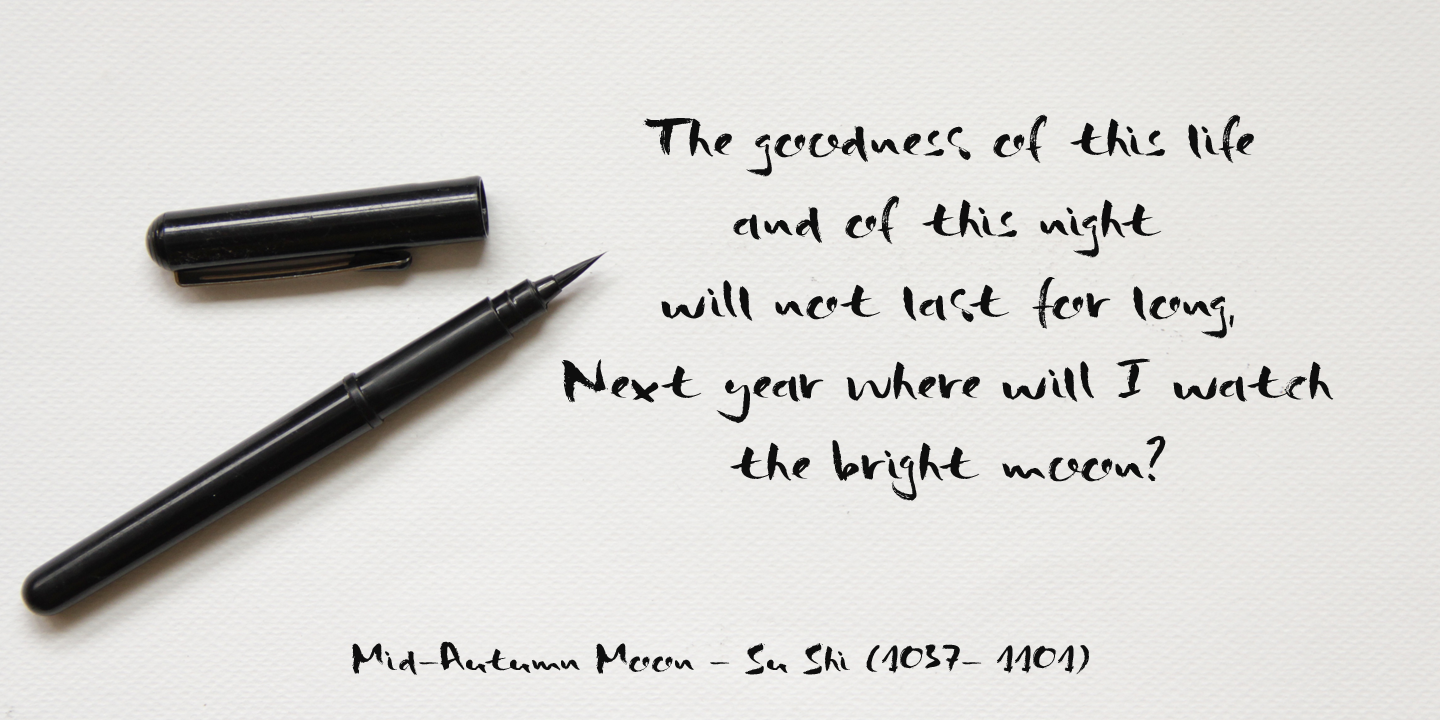 The goodness of this life
and of this night
will not last for long,
Next year where will I watch
the bright moon?
Mid-Autumn Moon - Su Shi (1037- 1101)